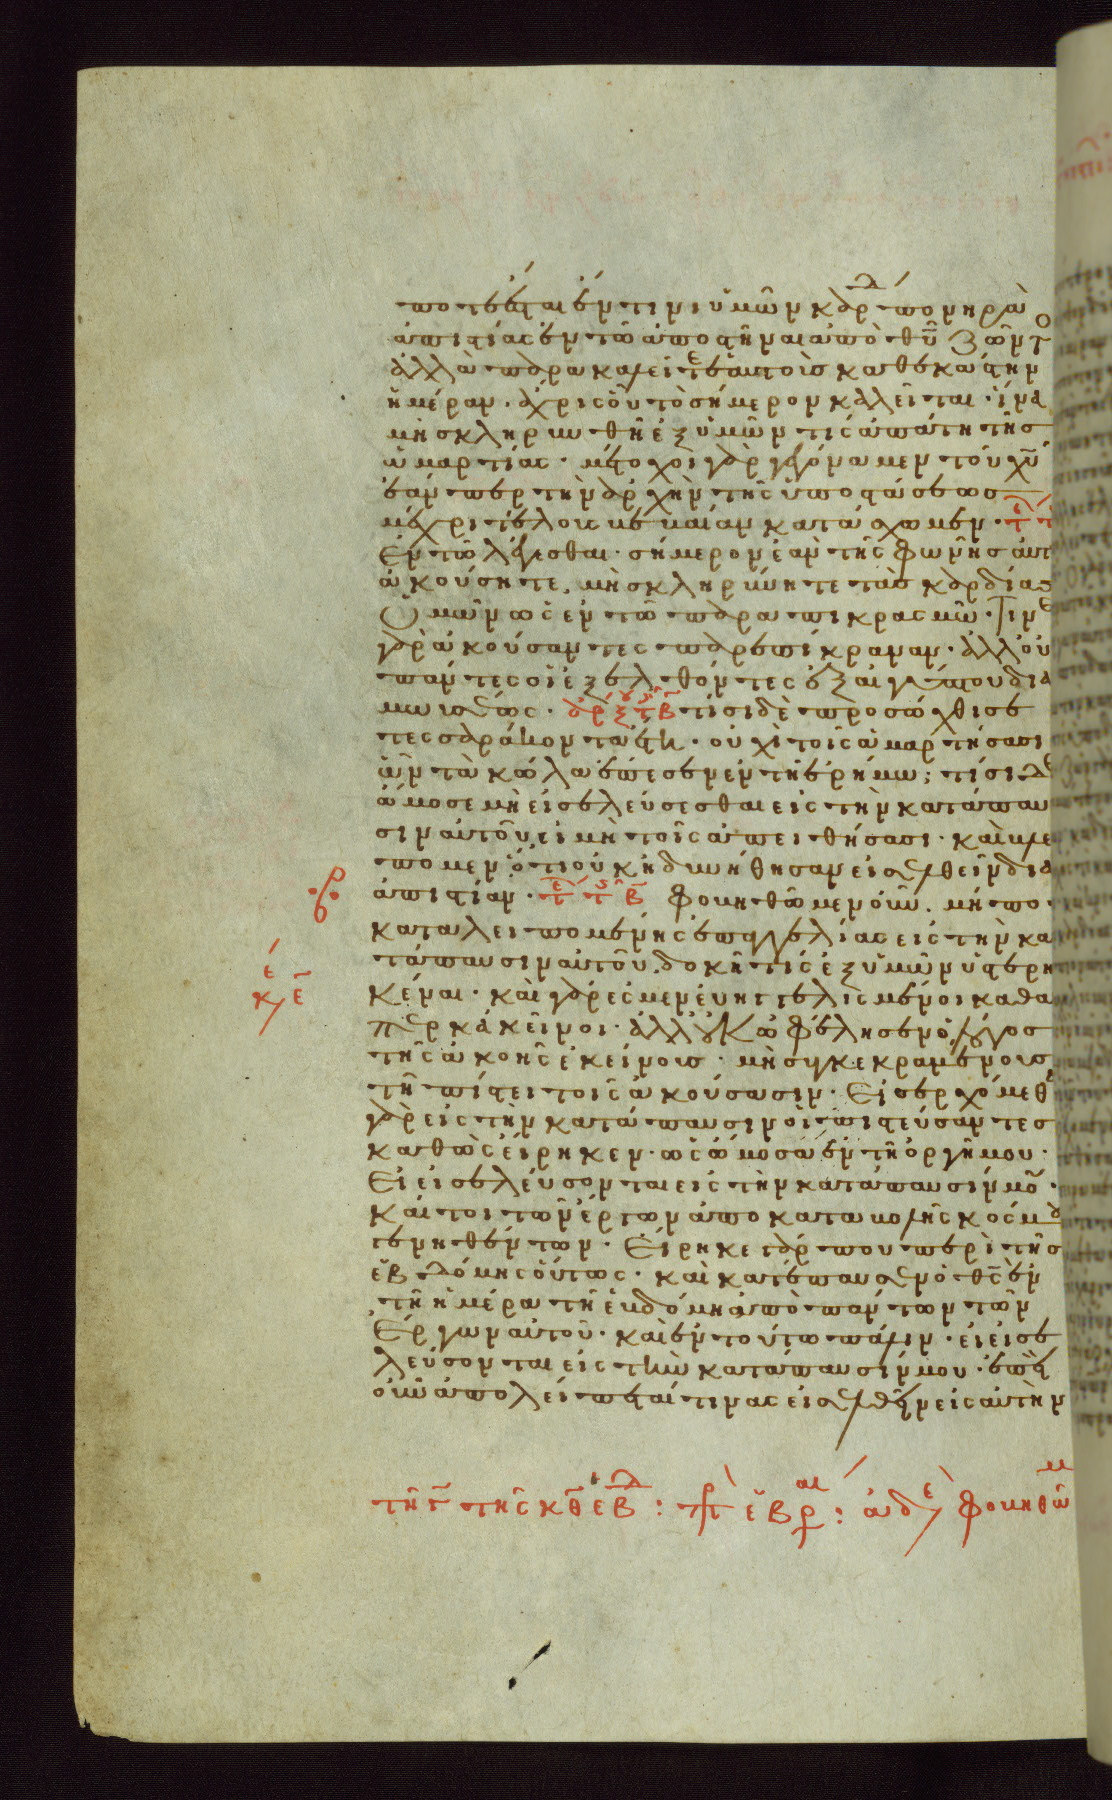 ποτε ἔσται ἔν τινι ὑμῶν καρδ πονηρὰ
ἀπιστίας ἐν τῶ ἀποστῆναι ἀπὸ θῦ ζῶντο
ἀλλὰ παρακαλεῖτε ἑαυτοὺς καθεκάστην
ἡμέραν· ἄχρις οὗ τὸ σήμερον καλεῖται· ἵνα
μὴ σκληρυνθῆ ἐξ ὑμῶν τίς ἀπάτη τῆς
ἁμαρτίας· μέτοχοι γὰρ γεγόναμεν τοῦ χῦ
ἐάνπερ τὴν ἀρχὴν τῆς ὑποστάσεως
μέχρι τέλους βεβαίαν κατάσχωμεν·
Ἐν τῶ λέγεσθαι· σήμερον ἐὰν τῆς φωνῆς αὐτ
ἀκούσητε, μὴ σκληρύνητε τὰς καρδίας
ὑμῶν ὡς ἐν τῶ παραπικρασμῶ· Τινὲ
γὰρ ἀκούσαντες παρεπίκραναν· ἀλλ' οὐ
πάντες οἱ ἐξελθόντες ἐξ αἰγύπτου διὰ
μωυσέως· τίσι δὲ προσώχθισε
τεσσαράκοντα ἔτη· οὐχὶ τοῖς ἁμαρτήσασι
ὧν τὰ κῶλα ἔπεσεν ἐν τῆ ἐρήμω; τίσι δὲ
ὤμοσε μὴ εἰσελεύσεσθαι εἰς τὴν κατάπαυ
σιν αὐτοῦ εἰ μὴ τοῖς ἀπειθήσασι· καὶ βλέ
πομεν ὅτι οὐκ ἠδυνήθησαν εἰσελθεῖν δι
ἀπιστίαν· Φοβηθῶμεν οὖν· μήπο
καταλειπομένης ἐπαγγελίας εἰς τὴν κα
τάπαυσιν αὐτοῦ, δοκῆ τίς ἐξ ὑμῶν ὑστερη
κέναι· καὶ γάρ ἐσμεν εὐηγγελισμένοι καθα
περ κἀκεῖνοι· ἀλλ' οὐκ ὠφέλησεν ὁ λόγος
τῆς ἀκοῆς ἐκείνους· μὴ συγκεκραμένους
τῆ πίστει τοῖς ἀκούσασιν· Εἰσερχόμεθ
γὰρ εἰς τὴν κατάπαυσιν οἱ πιστεύσαντες
καθὼς εἴρηκεν· ὡς ὤμοσα ἐν τῆ ὀργῆ μου·
Εἰ εἰσελεύσονται εἰς τὴν κατάπαυσίν μου·
Καίτοι τῶν ἔργων ἀπὸ καταβολῆς κόσμου
γενηθέντων· Εἴρηκε γάρ που περὶ τῆς
ἑβδόμης οὕτως· καὶ κατέπαυσεν ὁ θς ἐν
τῆ ἡμέρα τῆ ἑβδόμη ἀπὸ πάντων τῶν
Ἔργων αὐτοῦ· καὶ ἐν τούτω πάλιν· εἰ εἰσε
λεύσονται εἰς τὴν κατάπαυσίν μου· ἐπεὶ
οὖν ἀπολείπεται τινὰς εἰσελθεῖν εἰς αὐτὴν
τῆ γ τῆς κθ ἑβδ : πρ ἑβρ αι : ἀδε φοβηθῶμ